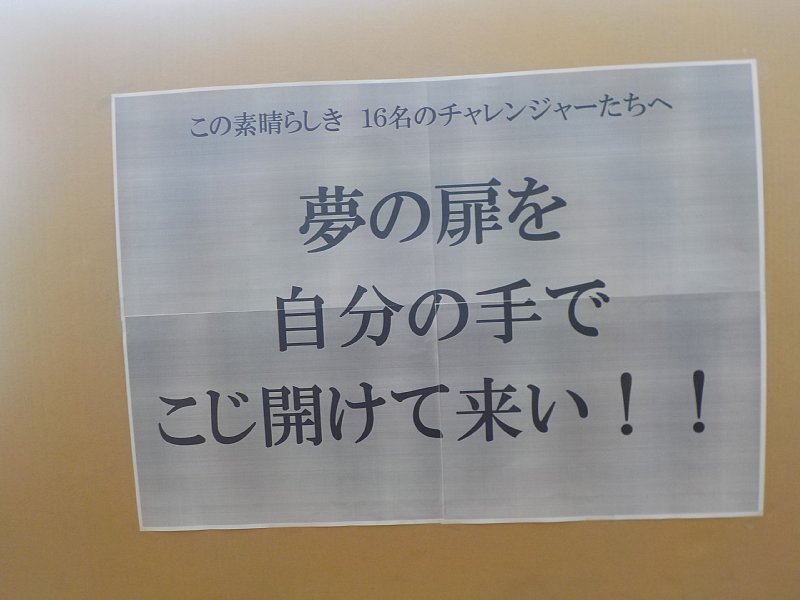 この素晴らしき 16名のチャレンジャーたちへ
夢の扉を
自分の手で
こじ開けて来い！！